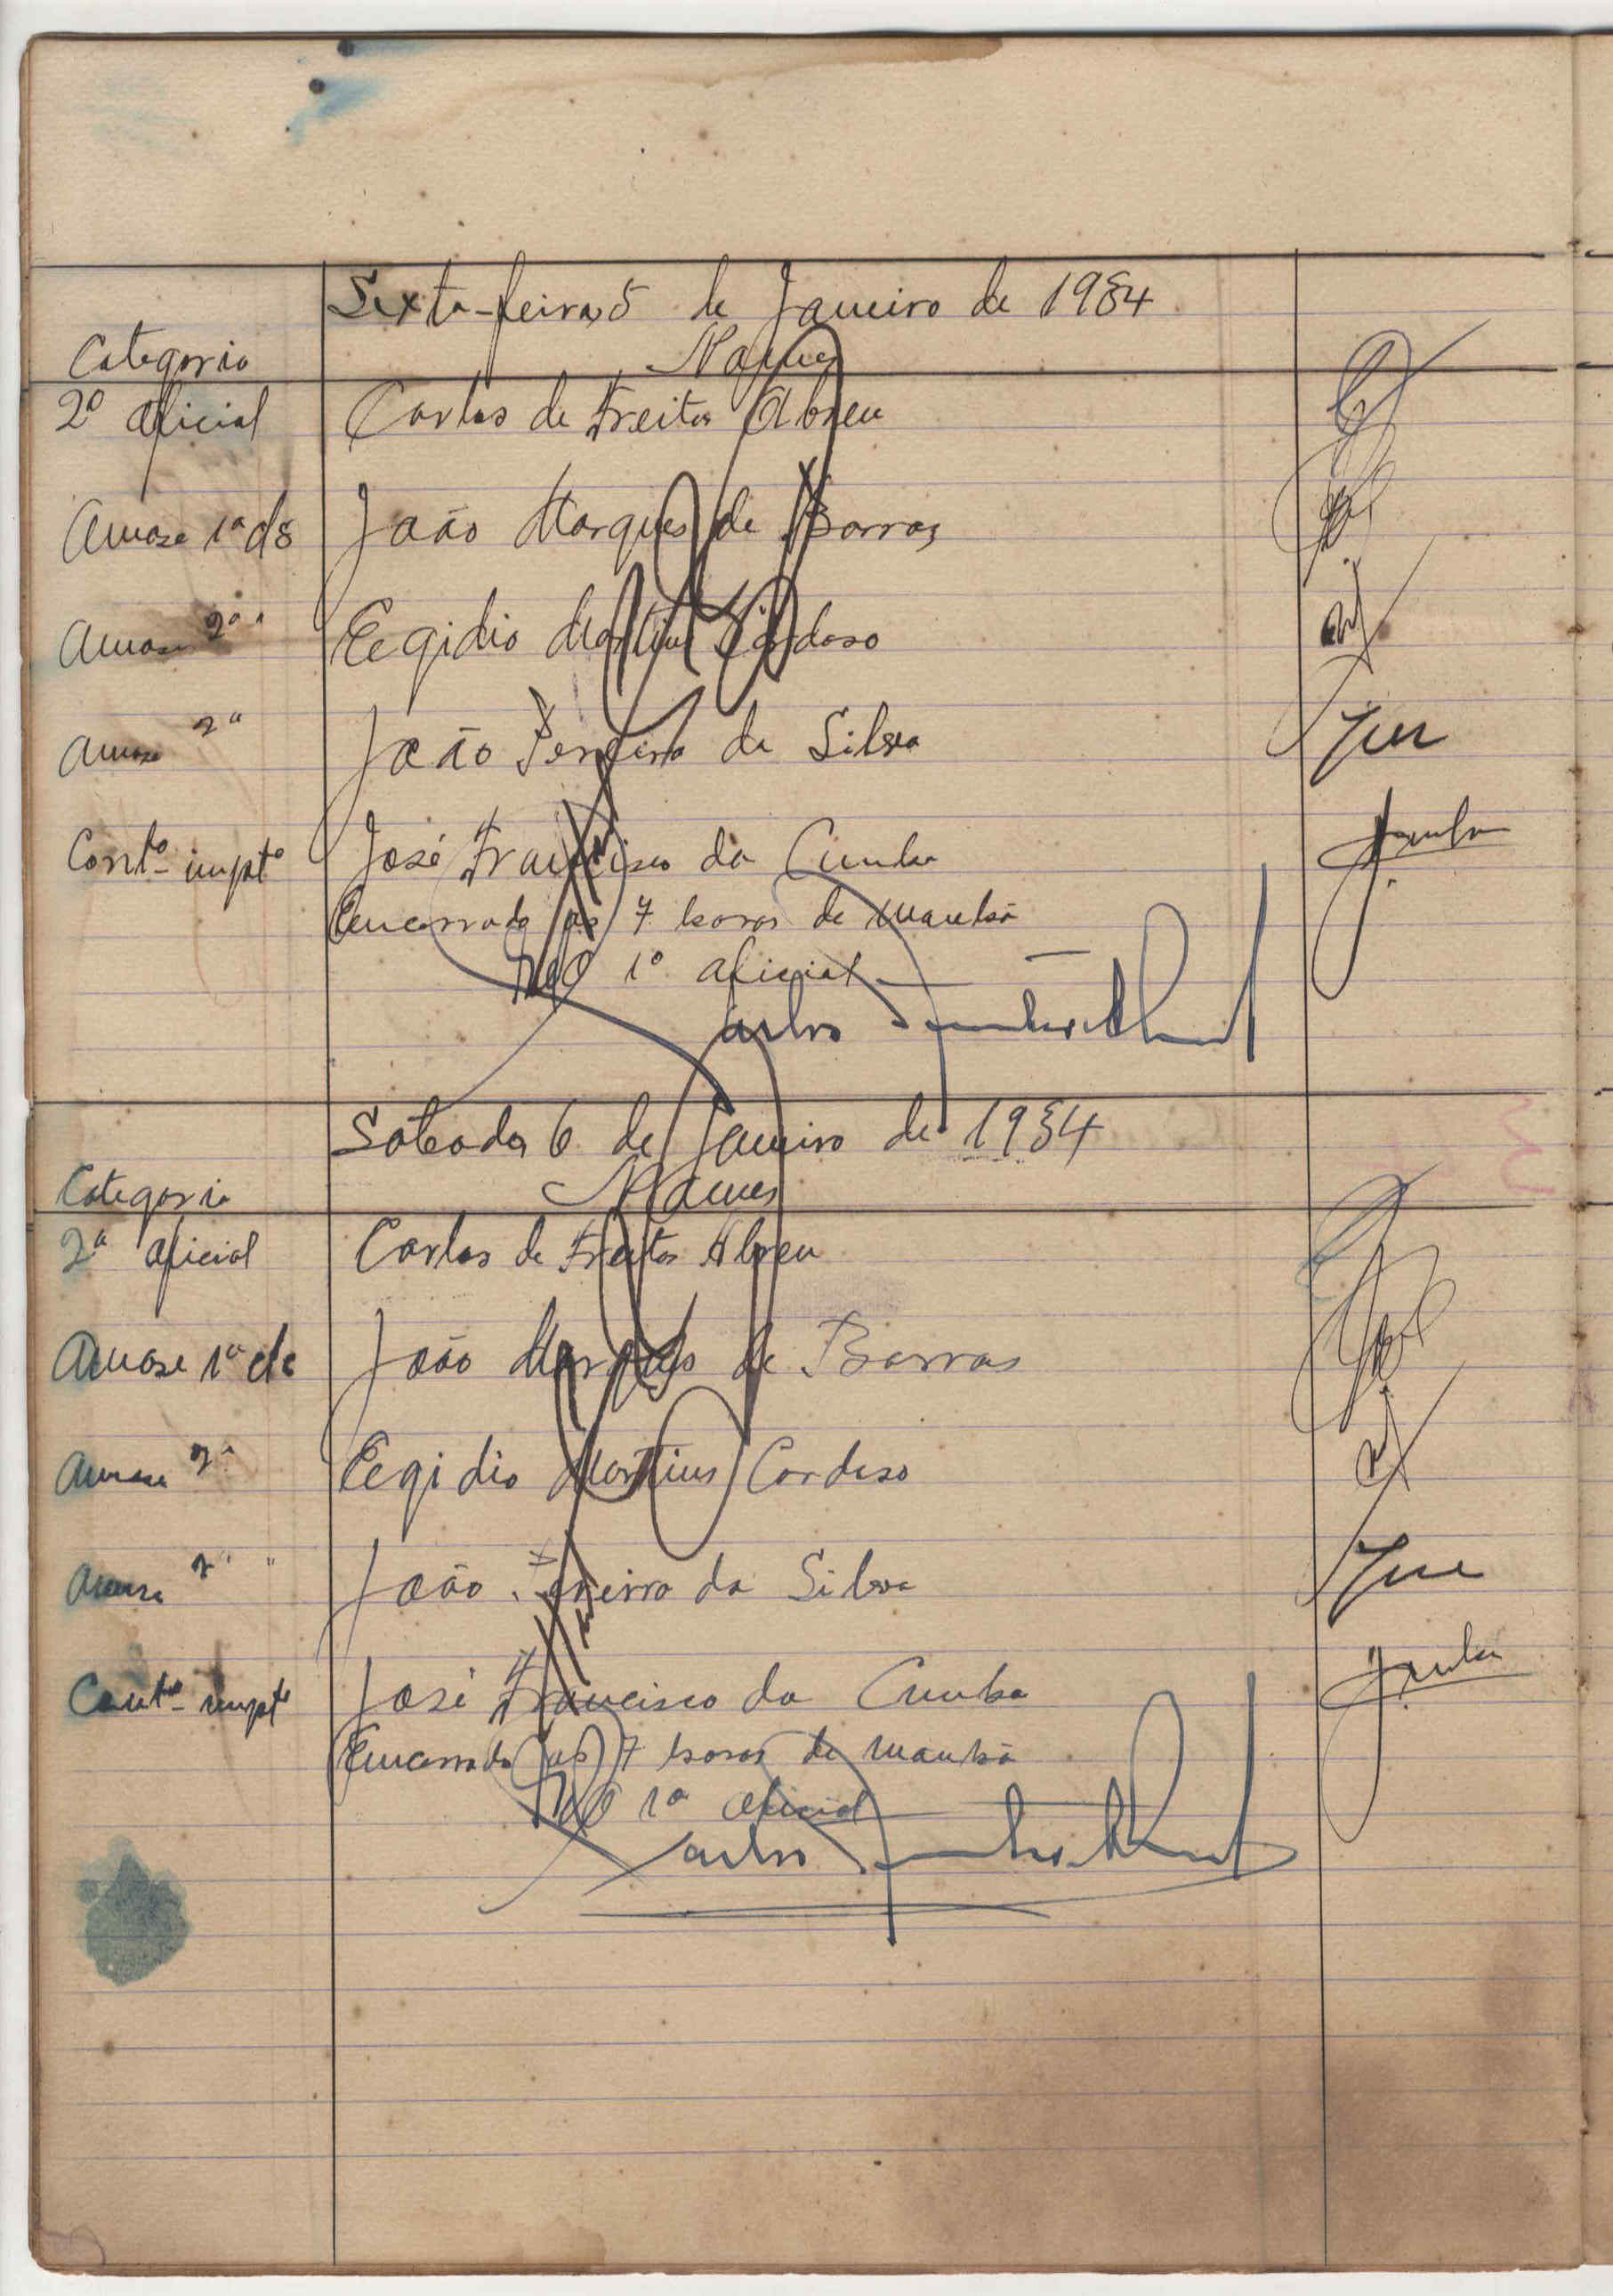 Sexta-feira, 5 de Janeiro de 1934
Categoria Nomes
2º Oficial Carlos de Freitas Abreu
Amase 1ª cls João Marques de Barros
Amase 2ª " Eegidio Martins Cardoso
Amase 2ª João Pereira da Silva
Contº impto José Francisco da Cunha
Encerrado às 7 horas da manhã
O 1º Oficial
Carlos
Sábado, 6 de Janeiro de 1934
Categoria Nomes
2º Oficial Carlos de Freitas Abreu
Amase 1ª cls João Marques de Barros
Amase 2ª Eegidio Martins Cardoso
Amase 2ª " João Pereira da Silva
Contº impto José Francisco da Cunha
Encerrado às 7 horas da manhã
O 1º Oficial
Carlos